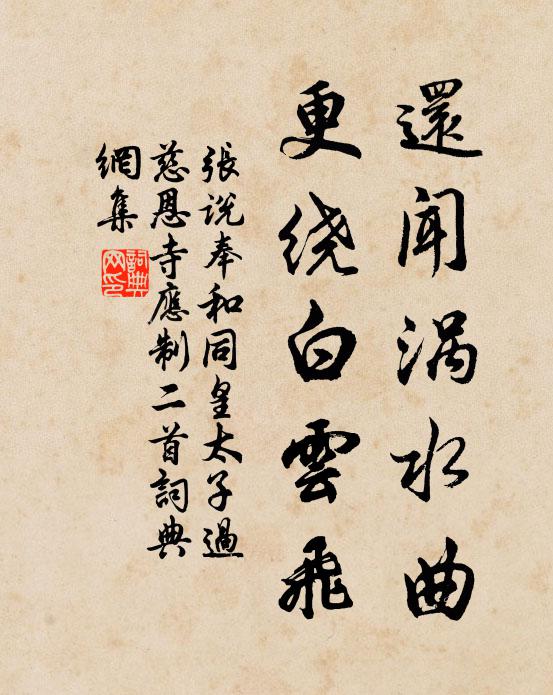 還聞涡水曲
更绕白雲飛
張说奉和同皇太子過
慈恩寺應制二首詞典
網集
詞典
网印